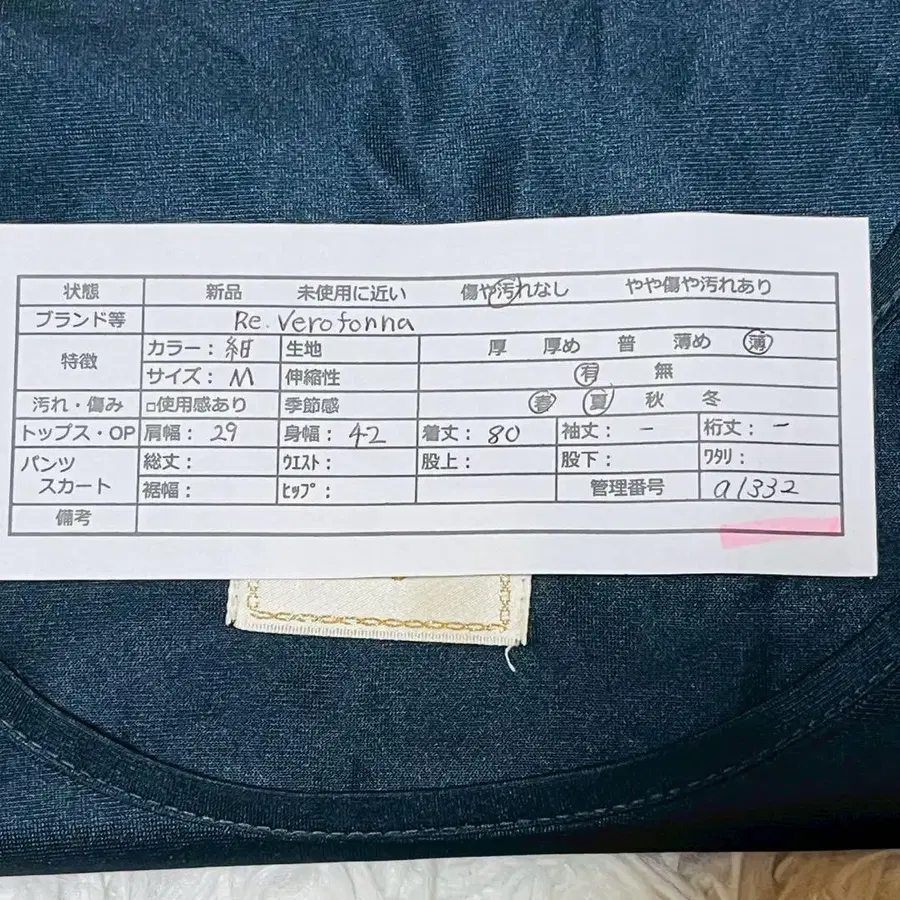 状態 新品 未使用に近い 傷や汚れなし やや傷や汚れあり
ブランド等 Re.Verofonna
特徴 カラー：紺 生地 厚 厚め 普 薄め 薄
サイズ：M 伸縮性 有 無
汚れ・傷み □使用感あり 季節感 春 夏 秋 冬
トップス・OP 肩幅：29 身幅：42 着丈：80 袖丈：- 裄丈：-
パンツ 総丈： ｳｴｽﾄ： 股上： 股下： ﾜﾀﾘ：
スカート 裾幅： ﾋｯﾌﾟ： 管理番号 a1332
備考